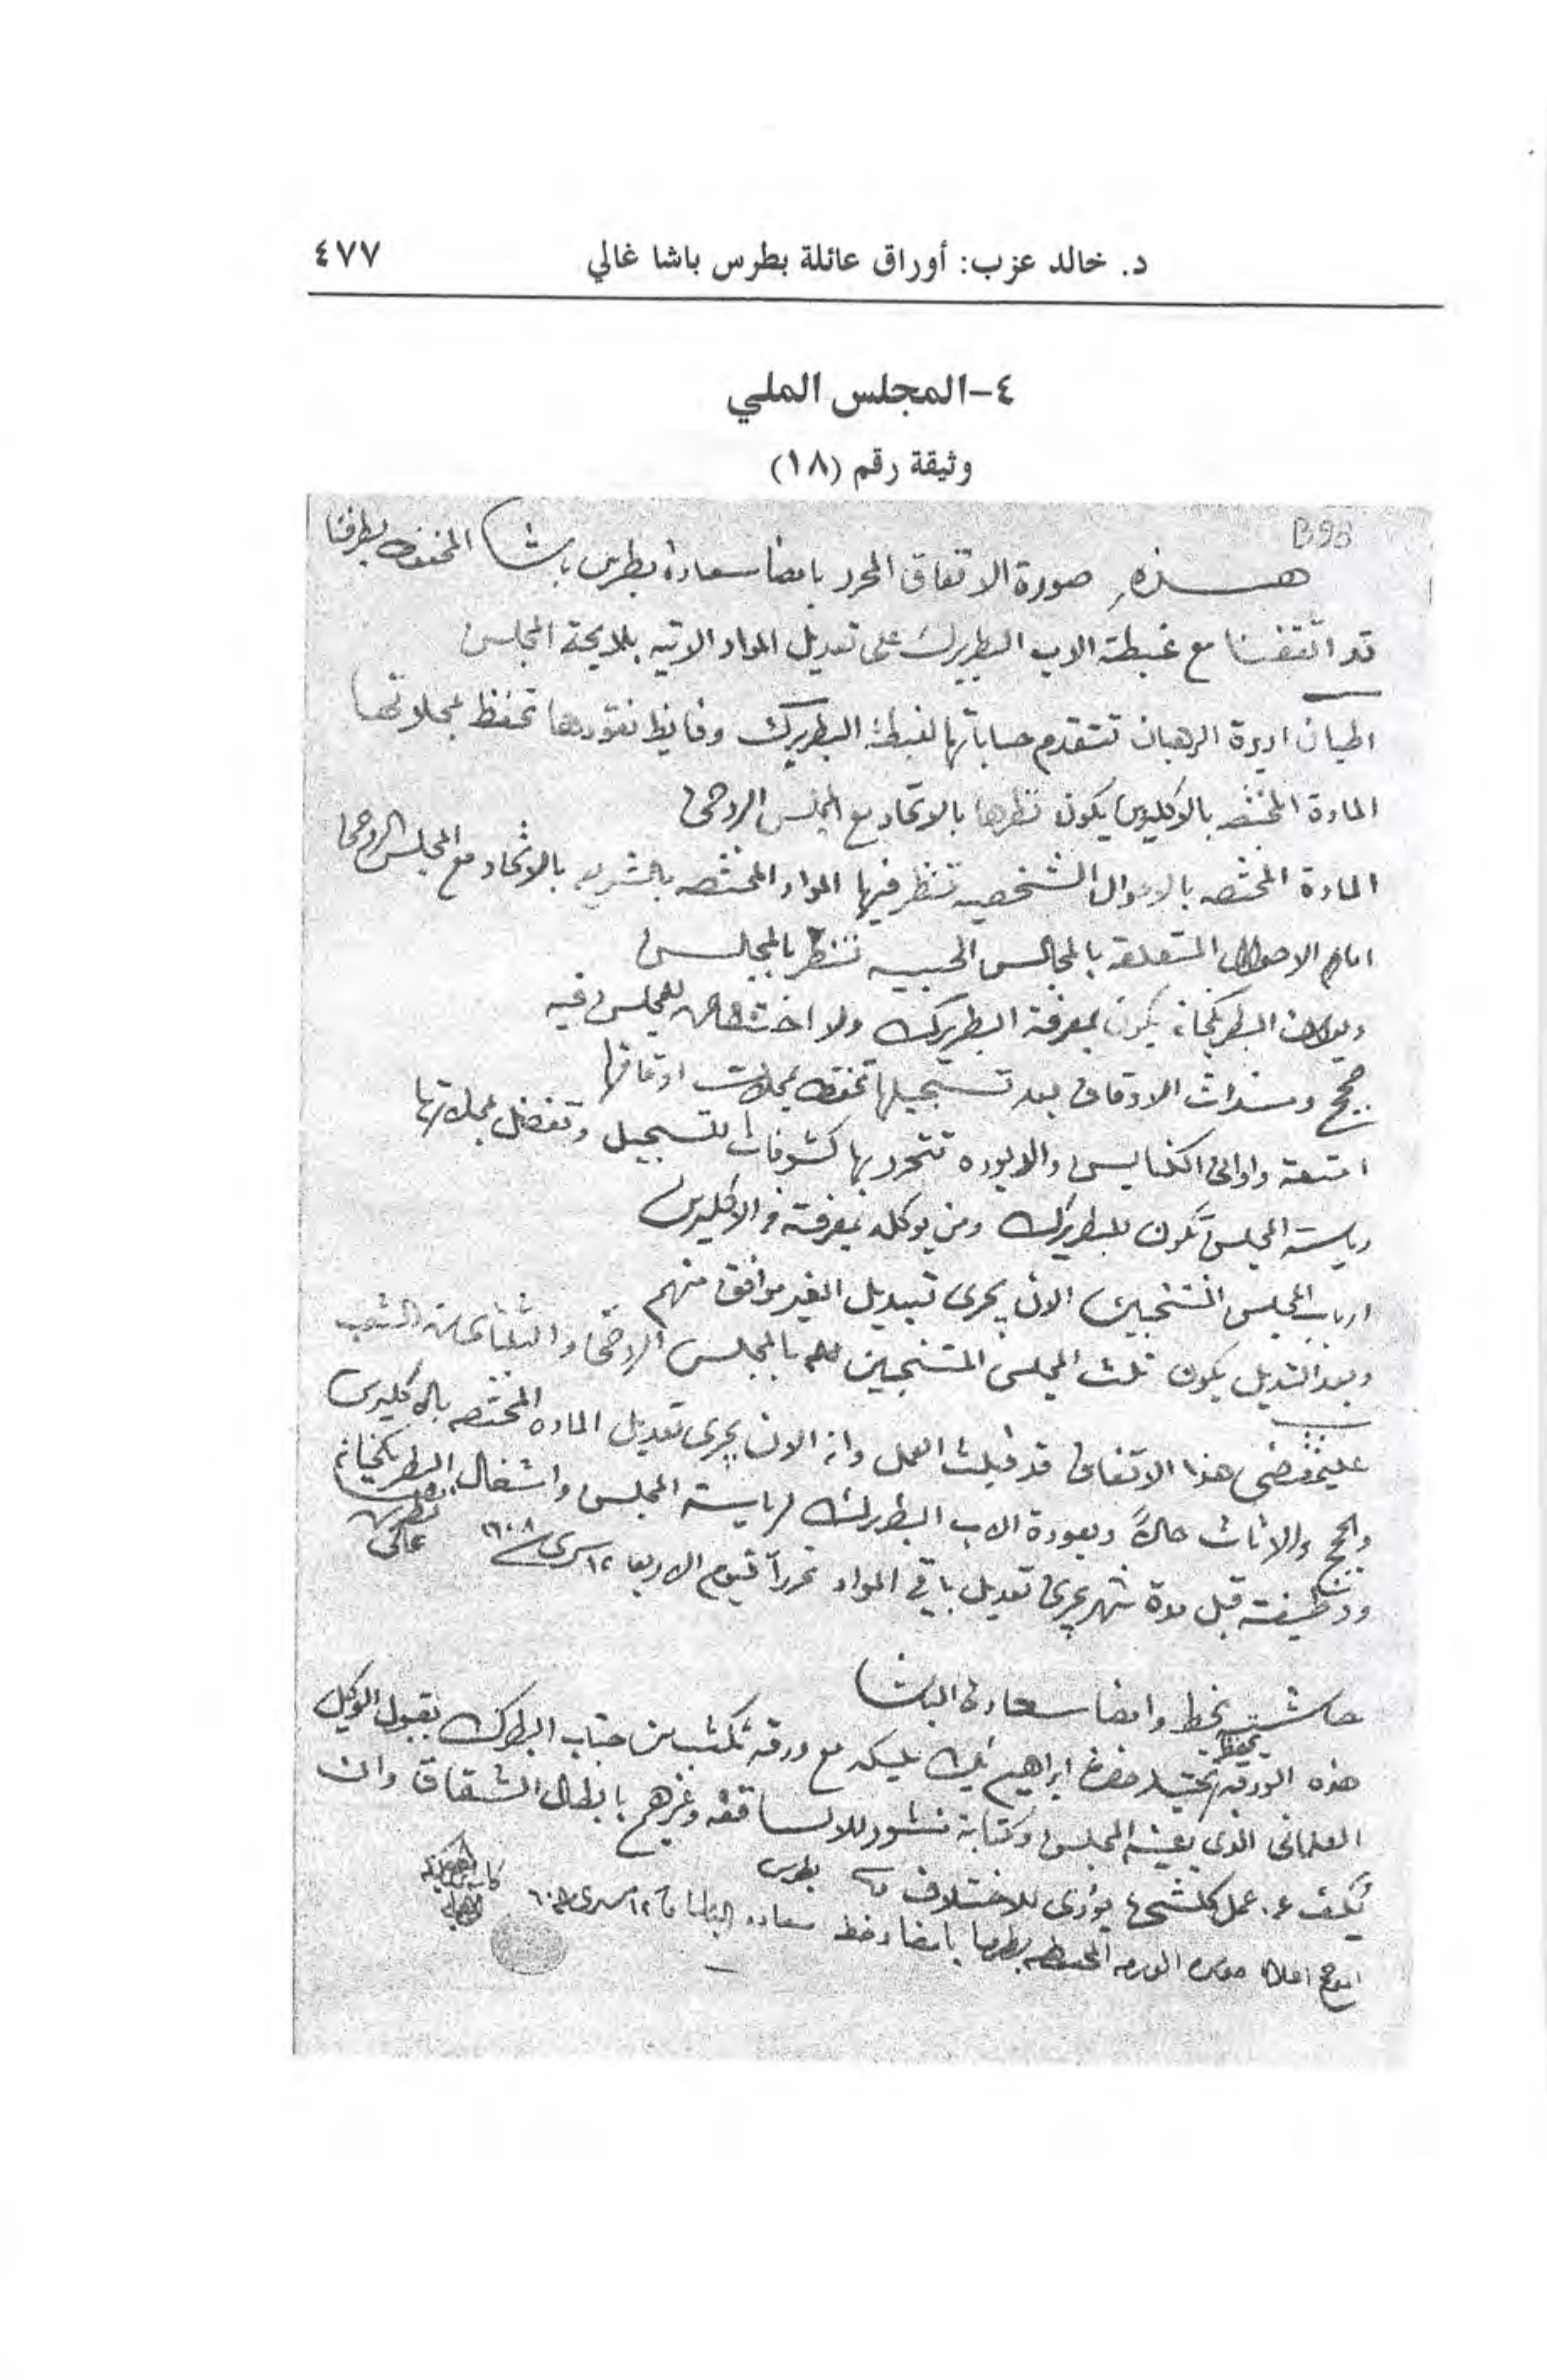 د. خالد عزب: أوراق عائلة بطرس باشا غالي ٤٧٧
٤-المجلس الملي
وثيقة رقم (١٨)
هذه صورة الاتفاق المحرر بامضا سعادة بطرس باشا المحفوظ بطرفنا
قد اتفقنا مع غبطة الاب البطريرك على تعديل المواد الاتيه بلايحة المجلس
اطيان اديرة الرهبان تتقدم حساباتها لغبطة البطريرك وفايظ نقودها تحفظ بمحلاتها
المادة المختصه بالاكليروس يكون نظرها بالاتحاد مع المجلس الروحى
المادة المختصه بالاحوال الشخصيه تنظر فيها المواد المختصه بالشريعه بالاتحاد مع المجلس الروحى
اما الاحوال المتعلقه بالمجالس الحسبيه تنظر بالمجلس
ديوان البطريكخانه يكون بمعرفة البطريرك ولا اختصاص للمجلس فيه
حجج ومسندات الاوقاف بعد تسجيلها تحفظ بمحلات اوقافها
امتعة واوانى الكنايس والاديوره تتحرر بها كشوفات للتسجيل وتفضل بمحلاتها
رياسة المجلس تكون للبطريرك ومن يوكله بمعرفته من الاكليروس
ارباب المجلس المنتخبين الان يجرى تبديل الغير موافق منهم
وبعد التبديل يكون ثلث المجلس المنتخبين بالمجلس الروحى والثلثان من الشعب
على مقتضى هذا الاتفاق قد قبلت العمل وانه الان يجرى تعديل الماده المختصه بالاكليروس
والحجج والاثاث حالاً وبعودة الاب البطريرك لرياسة المجلس واشغال البطريكخانه
ووظيفته قبل مدة شهر يجرى تعديل باقي المواد تحرراً فى يوم الاربعا ١٢ مسرى سنة ١٦٠٨
بطرس غالى
حاشيه بخط وامضا سعادة الباشا
هذه الورقه تحفظ بيد حضرة ابراهيم بيك مع ورقه تكتب من جناب البطرك بقبول الوكيل
العلمانى الذى يعينه المجلس وكتابة منشور للاساقفه وغيرهم بابطال الشقاق وان
يكف عن عمل كلشى يؤدى للاختلاف بطرس
اعلاه صورة الورقه المحفوظه بطرفنا بامضا وخط سعادة الباشا ١٢ مسرى ١٦٠٨